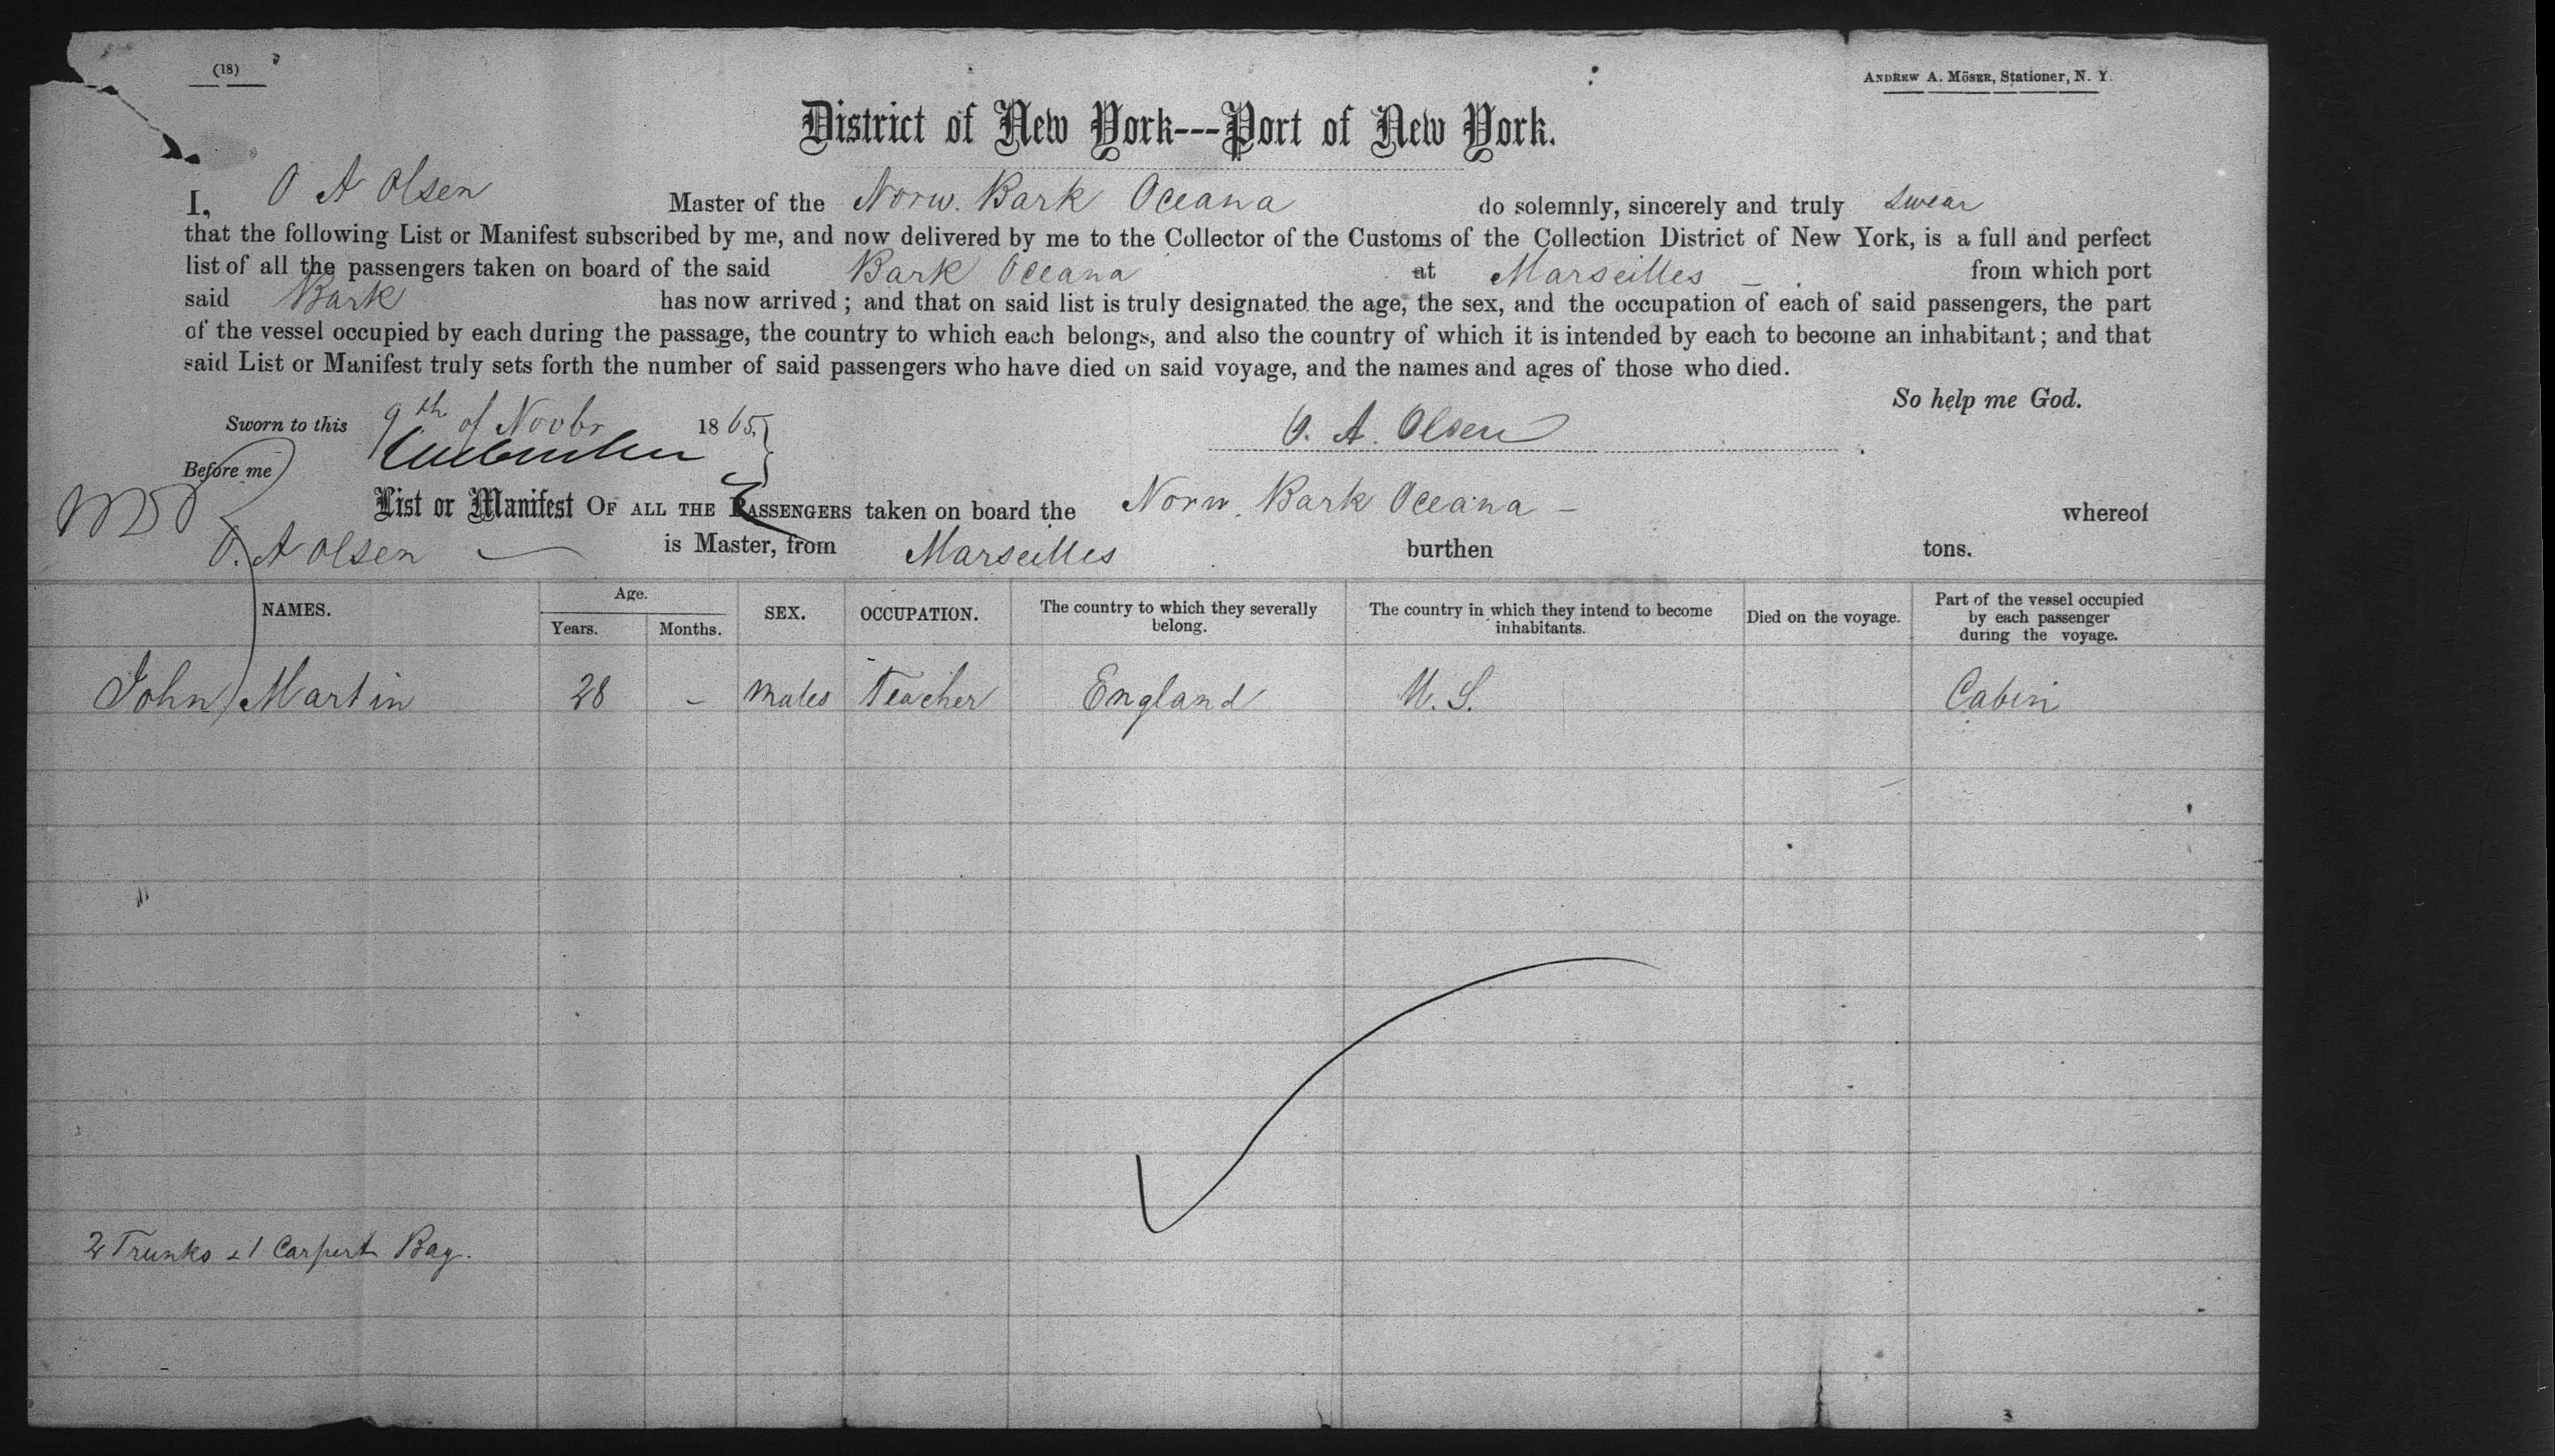 (18)
ANDREW A. MÖSER, Stationer, N. Y.
District of New York---Port of New York.
I, O A Olsen Master of the Norw. Bark Oceana do solemnly, sincerely and truly swear
that the following List or Manifest subscribed by me, and now delivered by me to the Collector of the Customs of the Collection District of New York, is a full and perfect
list of all the passengers taken on board of the said Bark Oceana at Marseilles from which port
said Bark has now arrived; and that on said list is truly designated the age, the sex, and the occupation of each of said passengers, the part
of the vessel occupied by each during the passage, the country to which each belongs, and also the country of which it is intended by each to become an inhabitant; and that
said List or Manifest truly sets forth the number of said passengers who have died on said voyage, and the names and ages of those who died.
So help me God.
Sworn to this 9th of Novbr 1865. O. A. Olsen
Before me
List or Manifest OF ALL THE PASSENGERS taken on board the Norw. Bark Oceana - whereof
O. A Olsen is Master, from Marseilles burthen tons.
NAMES. Age. Years. Months. SEX. OCCUPATION. The country to which they severally belong. The country in which they intend to become inhabitants. Died on the voyage. Part of the vessel occupied by each passenger during the voyage.
John Martin 28 - Males Teacher England U. S. Cabin
2 Trunks & 1 Carpert Bag.